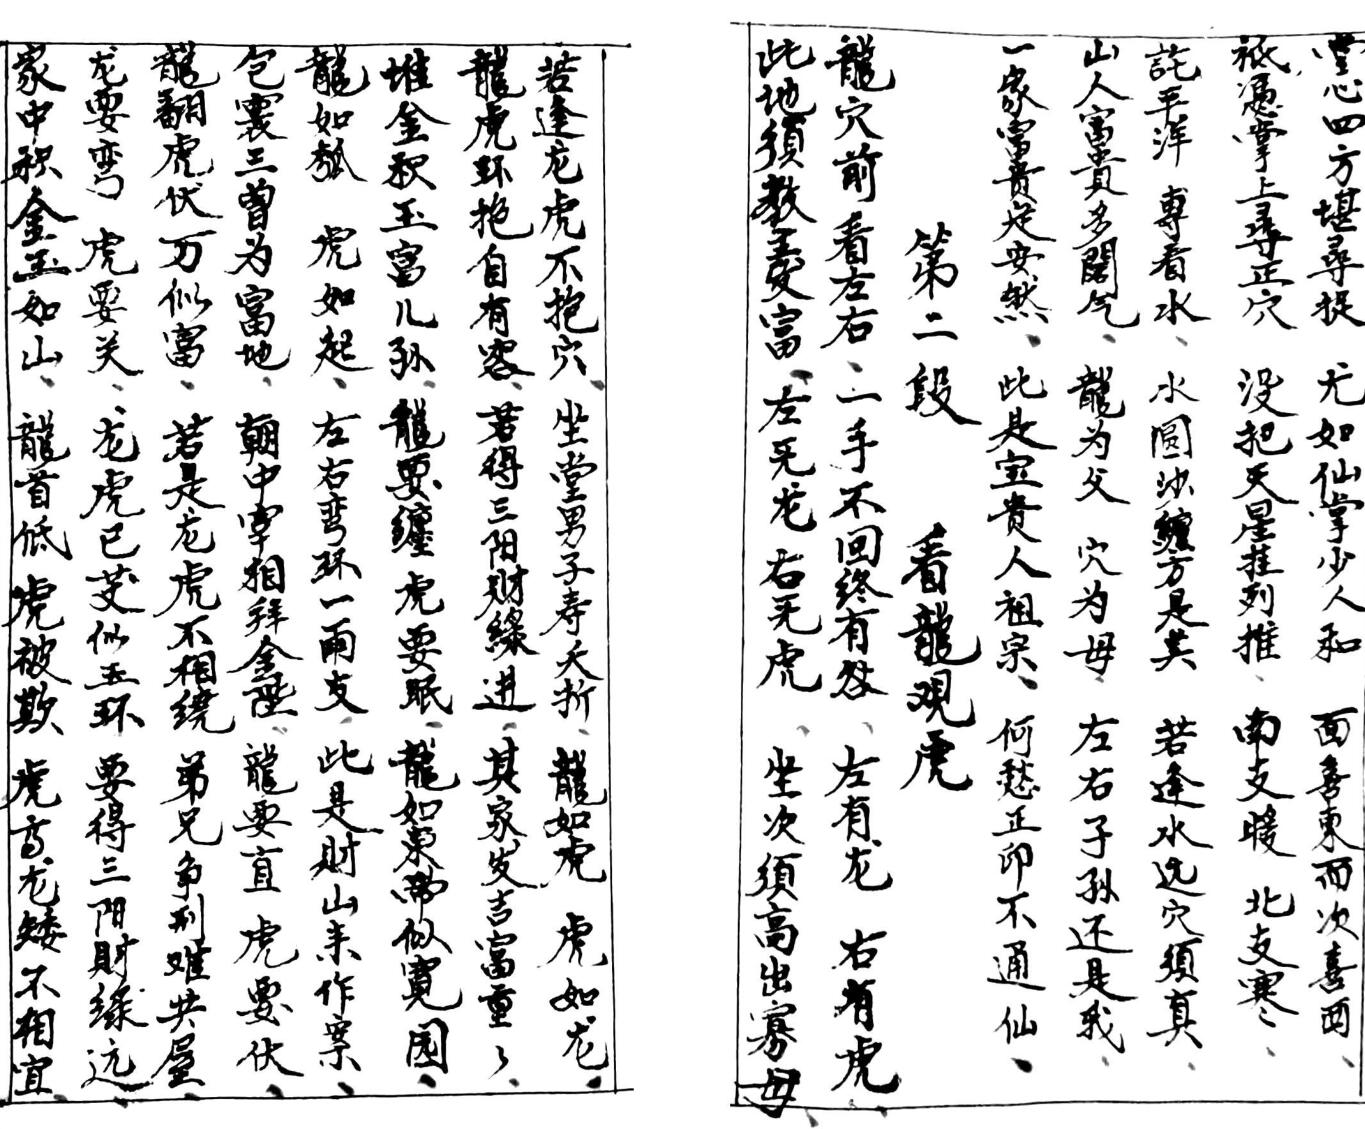 堂心四方堪尋捉 无如仙掌少人和 面喜東而次喜西
祇憑掌上尋正穴 没把天星挂列推 南支暖 北支寒
託平洋 專看水 水圆沙纏方是美 若逢水迯穴須真
山人富貴多閗气 龍为父 穴为母 左右子孙还是我
一家富貴足安然 此是宝贵人祖宗 何愁正印不通仙
第二段 看龍观虎
龍穴前 看左右 一手不回终有咎 左有龙 右有虎
此地須教主憂富 左无龙 右无虎 坐次須高出寡母
若逢龙虎不抱穴 坐堂男子寿夭折 龍如虎 虎如龙
龍虎环抱自有容 若得三阳財緣进 其家发吉富重〻
堆金积玉富儿孙 龍要纏 虎要眠 龍如束带似寬园
龍如瓠 虎如起 左右弯环一雨支 此是財山来作案
包裹三曽为富地 朝中宰相拜金陛 龍要直 虎要伏
龍翻虎伏万似富 若是龙虎不相绕 弟兄争刑难共屋
龙要弯 虎要关 龙虎已芟似玉环 要得三阳財緣远
家中积金玉如山 龍首低 虎被欺 虎高龙矮不相宜